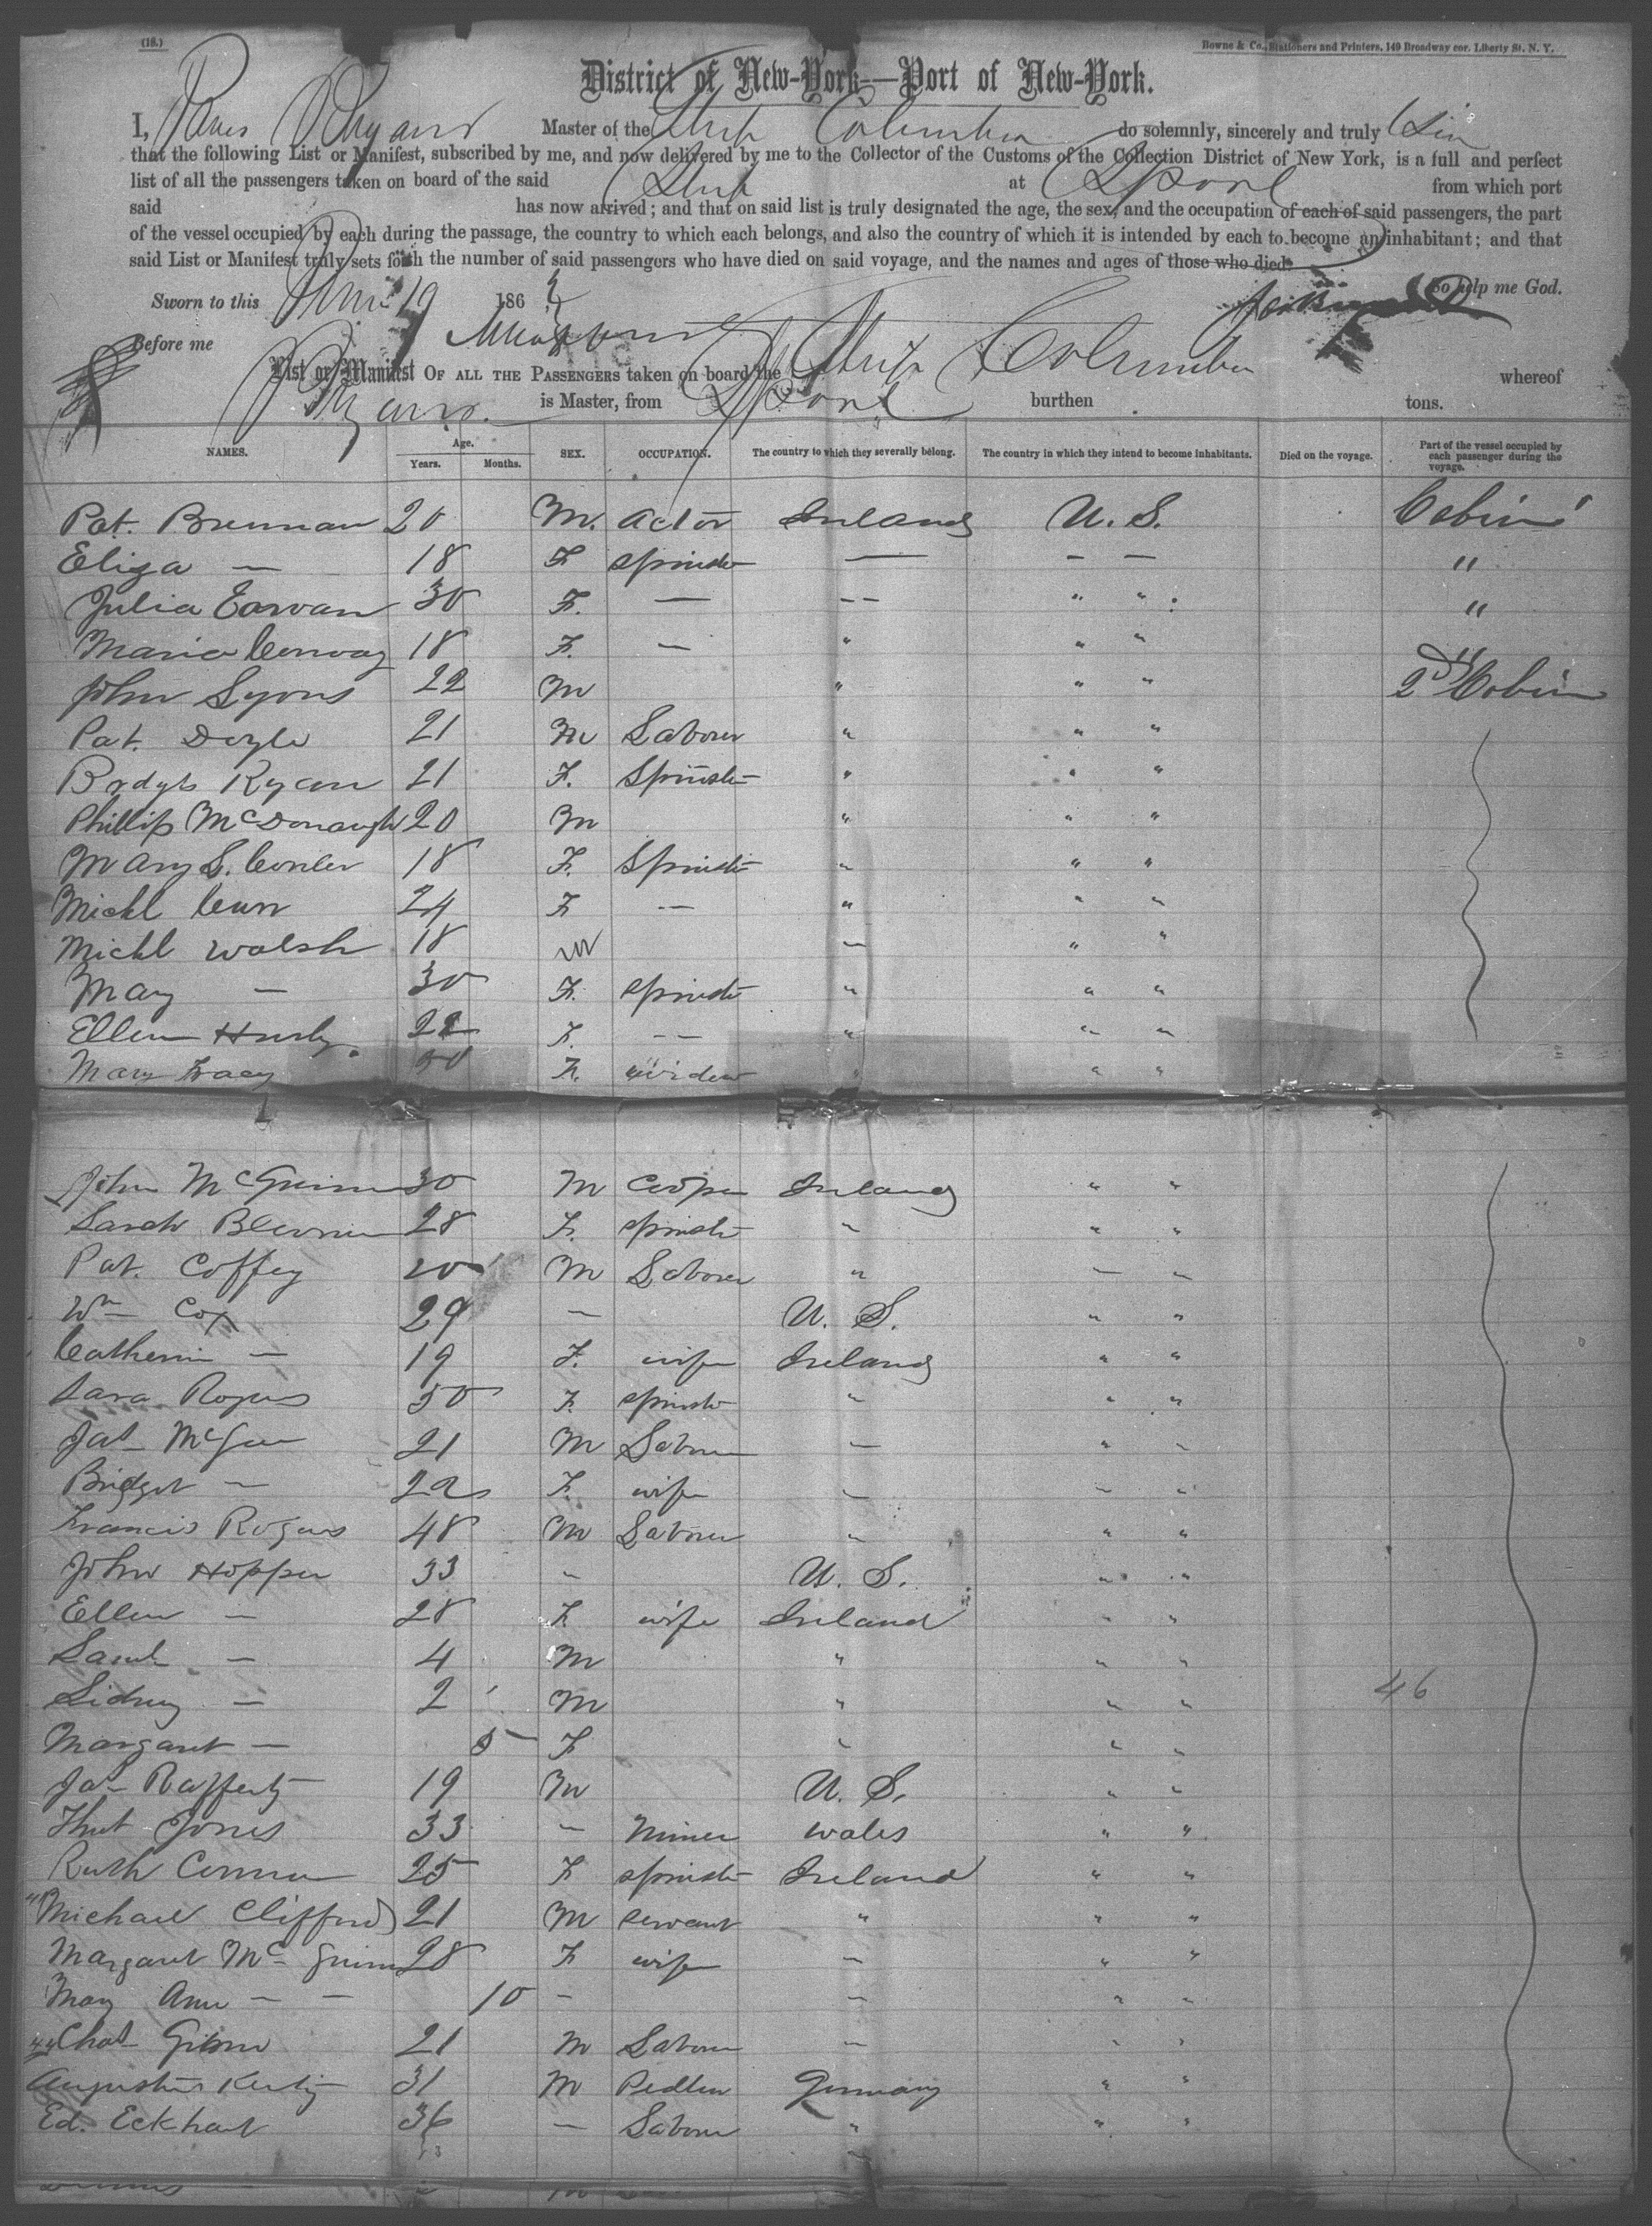 (18.)
Bowne & Co., Stationers and Printers, 149 Broadway cor. Liberty St. N. Y.
District of New-York—Port of New-York.
I, Master of the Ship Columbia do solemnly, sincerely and truly
that the following List or Manifest, subscribed by me, and now delivered by me to the Collector of the Customs of the Collection District of New York, is a full and perfect
list of all the passengers taken on board of the said Ship at Lpool from which port
said has now arrived; and that on said list is truly designated the age, the sex, and the occupation of each of said passengers, the part
of the vessel occupied by each during the passage, the country to which each belongs, and also the country of which it is intended by each to become an inhabitant; and that
said List or Manifest truly sets forth the number of said passengers who have died on said voyage, and the names and ages of those who died.
So help me God.
Sworn to this June 19 186
Before me
List or Manifest OF ALL THE PASSENGERS taken on board the Ship Columbia whereof
is Master, from Lpool burthen tons.
NAMES. Age. Years. Months. SEX. OCCUPATION. The country to which they severally belong. The country in which they intend to become inhabitants. Died on the voyage. Part of the vessel occupied by each passenger during the voyage.
Pat. Brennan 20 M. Actor Ireland U. S. Cabin
Eliza — 18 F spinster — — — "
Julia 30 F. — — — " " "
Maria Conway 18 F. — " " "
John Lyons 22 M " " " 2d Cabin
Pat. Doyle 21 M Laborer " " "
Bridgt Ryan 21 F. Spinster " " "
Phillip McDonaugh 20 M " " "
Mary S. 18 F. Spinster " " "
Michl 24 F — " " "
Michl Walsh 18 M — " "
Mary — 30 F. spinster " " "
Ellen 22 F. — — " " "
Mary Tracy F. widow " " "
John McGuinn 30 M Cooper Ireland " "
Sarah 28 F. spinster " " "
Pat. Coffey 20 M Laborer " — "
Wm Cox 29 — U. S. " "
Catherin — 19 F. wife Ireland " "
Sara Rogers 50 F. spinster " " "
Jas McGee 21 M Laborer — " "
Bridget — 22 F. wife — " "
Francis Rogers 48 M Laborer " " "
John Hopper 33 " U. S. " "
Ellen — 28 F. wife Ireland " "
Saml — 4 M " " "
Sidney — 2 M " " " 46
Margaret — 5 F " " "
Jas Rafferty 19 M U. S. " "
Jones 33 — Miner Wales " "
Ruth 25 F spinster Ireland " "
Michael Clifford 21 M servant " " "
Margaret McGuinn 28 F wife — " "
Mary Ann — — 10 — — " "
Chas 21 M Laborer — " "
Augustus 31 M Pedler Germany " "
Ed. Eckhart 36 — Laborer " " "